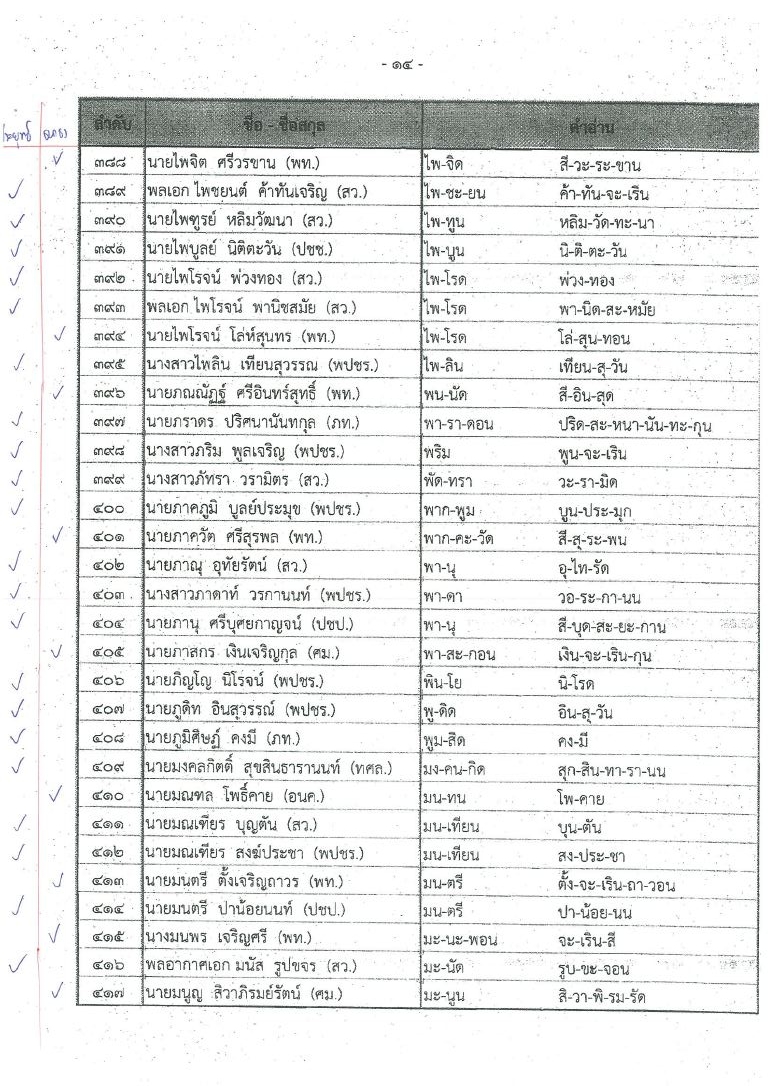 - ๑๔ -
ลำดับ ชื่อ - ชื่อสกุล คำอ่าน
๓๘๘ นายไพจิต ศรีวรขาน (พท.) ไพ-จิด สี-วะ-ระ-ขาน
๓๘๙ พลเอก ไพชยนต์ ค้าทันเจริญ (สว.) ไพ-ชะ-ยน ค้า-ทัน-จะ-เริน
๓๙๐ นายไพฑูรย์ หลิมวัฒนา (สว.) ไพ-ทูน หลิม-วัด-ทะ-นา
๓๙๑ นายไพบูลย์ นิติตะวัน (ปชช.) ไพ-บูน นิ-ติ-ตะ-วัน
๓๙๒ นายไพโรจน์ พ่วงทอง (สว.) ไพ-โรด พ่วง-ทอง
๓๙๓ พลเอก ไพโรจน์ พานิชสมัย (สว.) ไพ-โรด พา-นิด-สะ-หมัย
๓๙๔ นายไพโรจน์ โล่ห์สุนทร (พท.) ไพ-โรด โล่-สุน-ทอน
๓๙๕ นางสาวไพลิน เทียนสุวรรณ (พปชร.) ไพ-ลิน เทียน-สุ-วัน
๓๙๖ นายภณณัฏฐ์ ศรีอินทร์สุทธิ์ (พท.) พน-นัด สี-อิน-สุด
๓๙๗ นายภราดร ปริศนานันทกุล (ภท.) พา-รา-ดอน ปริด-สะ-หนา-นัน-ทะ-กุน
๓๙๘ นางสาวภริม พูลเจริญ (พปชร.) พริม พูน-จะ-เริน
๓๙๙ นางสาวภัทรา วรามิตร (สว.) พัด-ทรา วะ-รา-มิด
๔๐๐ นายภาคภูมิ บูลย์ประมุข (พปชร.) พาก-พูม บูน-ประ-มุก
๔๐๑ นายภาควัต ศรีสุรพล (พท.) พาก-คะ-วัด สี-สุ-ระ-พน
๔๐๒ นายภาณุ อุทัยรัตน์ (สว.) พา-นุ อุ-ไท-รัด
๔๐๓ นางสาวภาดาท์ วรกานนท์ (พปชร.) พา-ดา วอ-ระ-กา-นน
๔๐๔ นายภานุ ศรีบุศยกาญจน์ (ปชป.) พา-นุ สี-บุด-สะ-ยะ-กาน
๔๐๕ นายภาสกร เงินเจริญกุล (ศม.) พา-สะ-กอน เงิน-จะ-เริน-กุน
๔๐๖ นายภิญโญ นิโรจน์ (พปชร.) พิน-โย นิ-โรด
๔๐๗ นายภูดิท อินสุวรรณ์ (พปชร.) พู-ดิด อิน-สุ-วัน
๔๐๘ นายภูมิศิษฏ์ คงมี (ภท.) พูม-สิด คง-มี
๔๐๙ นายมงคลกิตติ์ สุขสินธารานนท์ (ทศล.) มง-คน-กิด สุก-สิน-ทา-รา-นน
๔๑๐ นายมณฑล โพธิ์คาย (อนค.) มน-ทน โพ-คาย
๔๑๑ นายมณเฑียร บุญตัน (สว.) มน-เทียน บุน-ตัน
๔๑๒ นายมณเฑียร สงฆ์ประชา (พปชร.) มน-เทียน สง-ประ-ชา
๔๑๓ นายมนตรี ตั้งเจริญถาวร (พท.) มน-ตรี ตั้ง-จะ-เริน-ถา-วอน
๔๑๔ นายมนตรี ปาน้อยนนท์ (ปชป.) มน-ตรี ปา-น้อย-นน
๔๑๕ นางมนพร เจริญศรี (พท.) มะ-นะ-พอน จะ-เริน-สี
๔๑๖ พลอากาศเอก มนัส รูปขจร (สว.) มะ-นัด รูบ-ขะ-จอน
๔๑๗ นายมนูญ สิวาภิรมย์รัตน์ (ศม.) มะ-นูน สิ-วา-พิ-รม-รัด